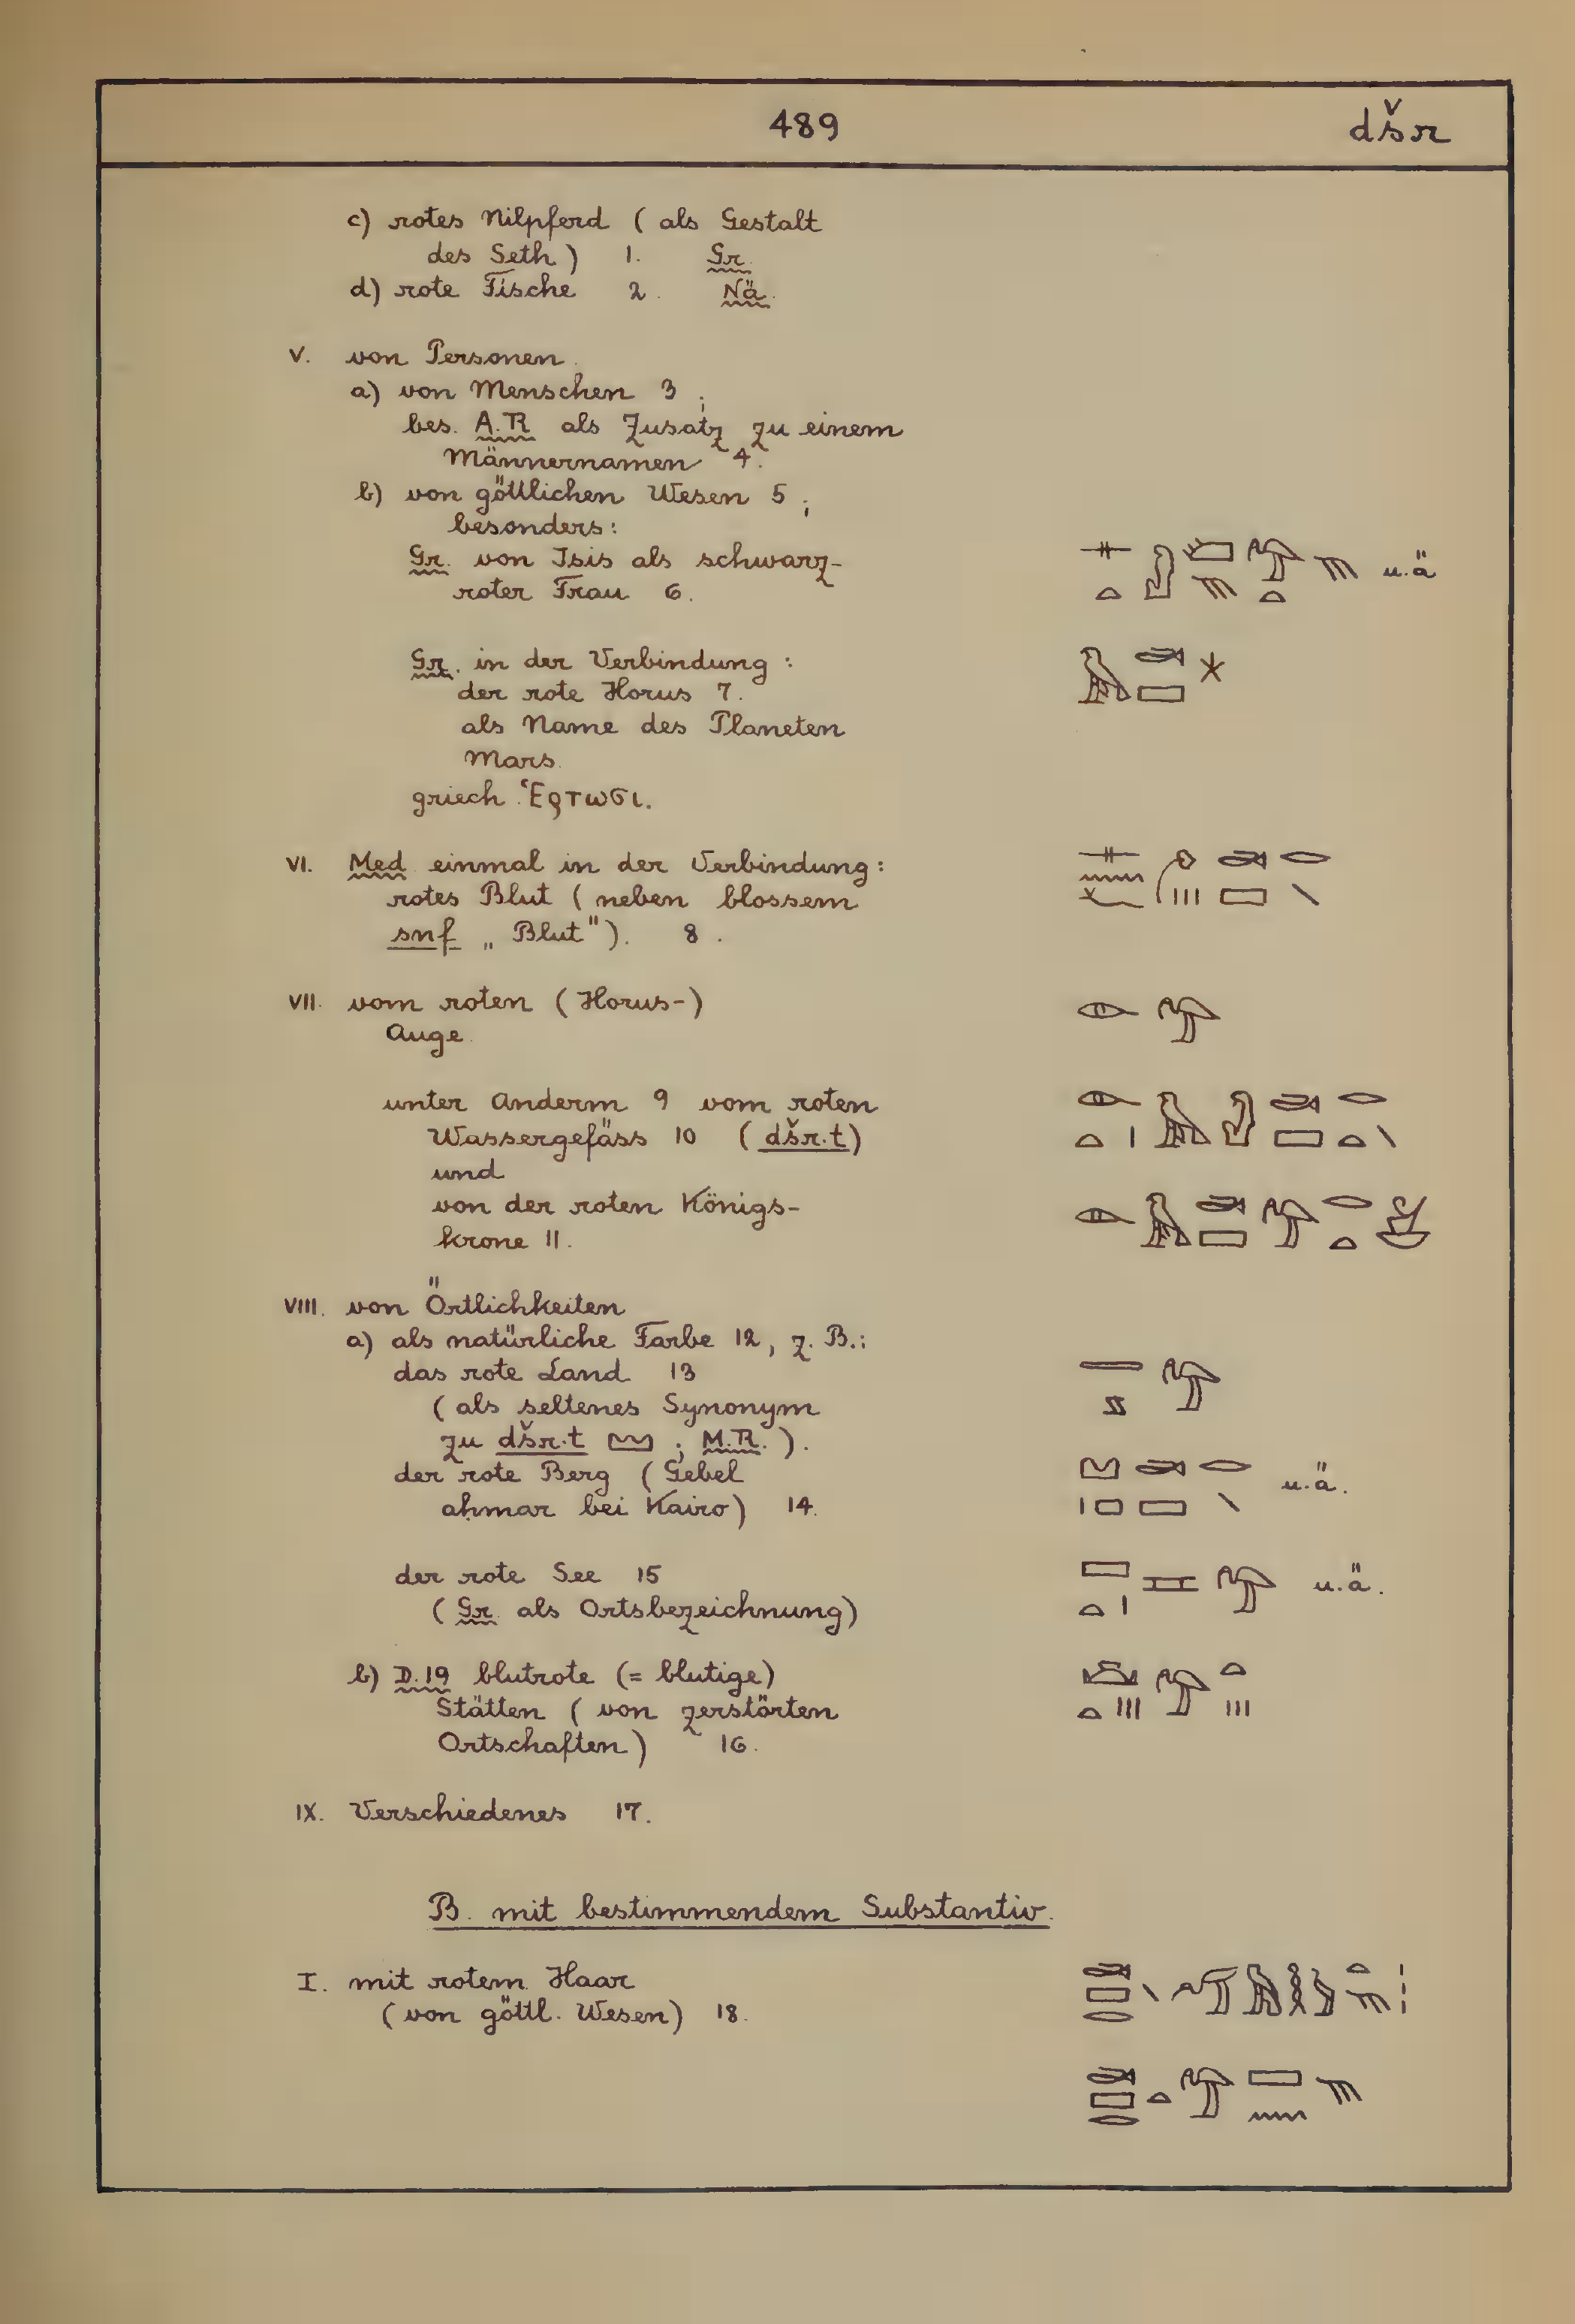 489 dšr
c) rotes Nilpferd ( als Gestalt
des Seth ) 1. Gr.
d) rote Fische 2. Nä.
V. von Personen.
a) von Menschen 3 ;
bes. A.R als Zusatz zu einem
Männernamen 4.
b) von göttlichen Wesen 5 ;
besonders:
Gr. von Isis als schwarz-
roter Frau 6. u.ä
Gr. in der Verbindung :
der rote Horus 7.
als Name des Planeten
Mars.
griech. Ἑρτωσι.
VI. Med einmal in der Verbindung:
rotes Blut ( neben blossem
snf „ Blut"). 8 .
VII. vom roten ( Horus-)
Auge.
unter Anderm 9 vom roten
Wassergefäss 10 ( dšr.t)
und
von der roten Königs-
krone 11.
VIII. von Örtlichkeiten
a) als natürliche Farbe 12, z. B.:
das rote Land 13
( als seltenes Synonym
zu dšr.t 𓈉 ; M.R. ).
der rote Berg ( Gebel u.ä.
ahmar bei Kairo) 14.
der rote See 15 u.ä.
( Gr. als Ortsbezeichnung)
b) D.19 blutrote (= blutige)
Stätten ( von zerstörten
Ortschaften ) 16.
IX. Verschiedenes 17.
B. mit bestimmendem Substantiv.
I. mit rotem Haar
( von göttl. Wesen) 18.